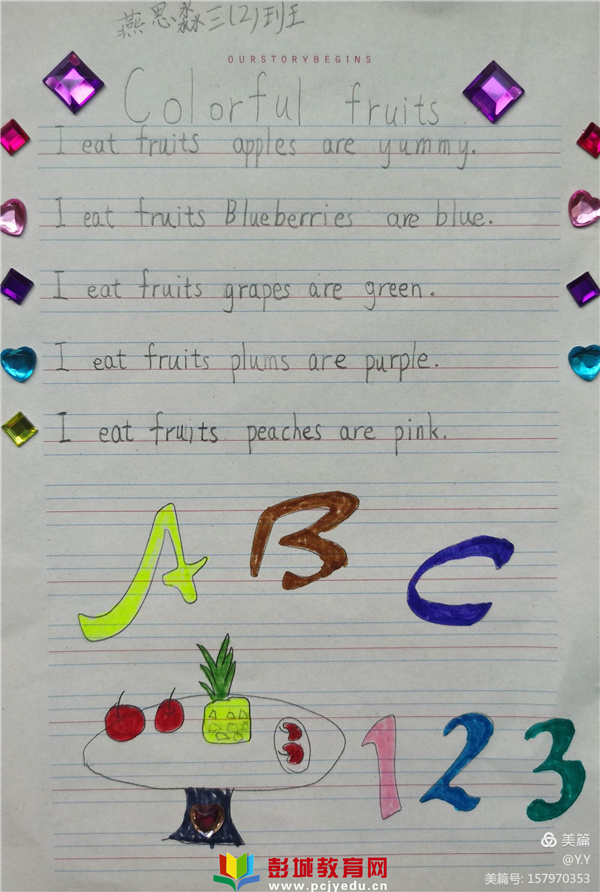 燕思淼三(2)班
OURSTORYBEGINS
Colorful fruits
I eat fruits apples are yummy.
I eat fruits Blueberries are blue.
I eat fruits grapes are green.
I eat fruits plums are purple.
I eat fruits peaches are pink.
A B C
1 2 3
美篇
@Y.Y
美篇号: 157970353
彭城教育网
www.pcjyedu.cn